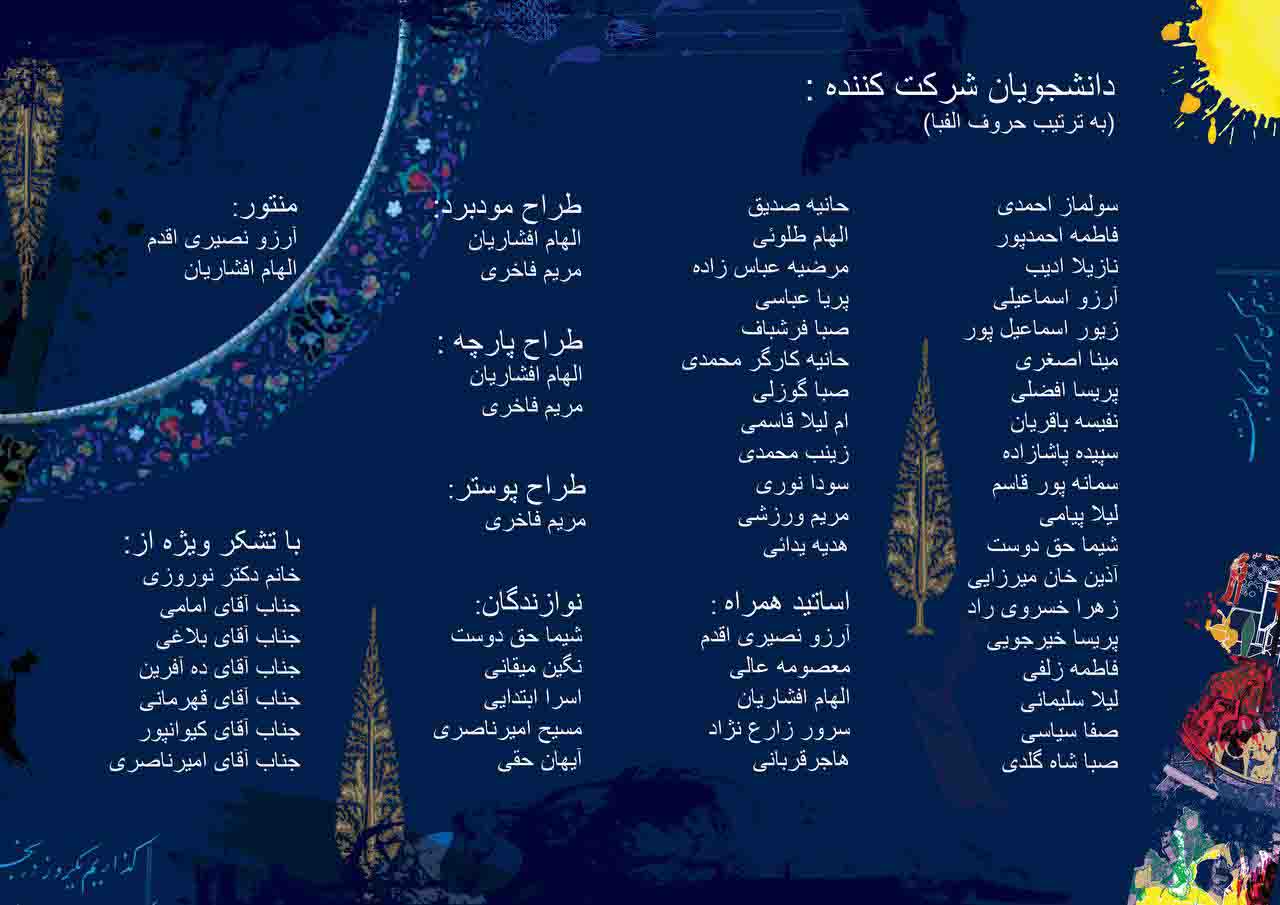 دانشجویان شرکت کننده :
(به ترتیب حروف الفبا)
سولماز احمدی
فاطمه احمدپور
نازیلا ادیب
آرزو اسماعیلی
زیور اسماعیل پور
مینا اصغری
پریسا افضلی
نفیسه باقریان
سپیده پاشازاده
سمانه پور قاسم
لیلا پیامی
شیما حق دوست
آذین خان میرزایی
زهرا خسروی راد
پریسا خیرجویی
فاطمه زلفی
لیلا سلیمانی
صفا سیاسی
صبا شاه گلدی
حانیه صدیق
الهام طلوئی
مرضیه عباس زاده
پریا عباسی
صبا فرشباف
حانیه کارگر محمدی
صبا گوزلی
ام لیلا قاسمی
زینب محمدی
سودا نوری
مریم ورزشی
هدیه یدائی
اساتید همراه :
آرزو نصیری اقدم
معصومه عالی
الهام افشاریان
سرور زارع نژاد
هاجرقربانی
طراح مودبرد:
الهام افشاریان
مریم فاخری
طراح پارچه :
الهام افشاریان
مریم فاخری
طراح پوستر:
مریم فاخری
نوازندگان:
شیما حق دوست
نگین میقانی
اسرا ابتدایی
مسیح امیرناصری
آیهان حقی
منتور:
آرزو نصیری اقدم
الهام افشاریان
با تشکر ویژه از:
خانم دکتر نوروزی
جناب آقای امامی
جناب آقای بلاغی
جناب آقای ده آفرین
جناب آقای قهرمانی
جناب آقای کیوانپور
جناب آقای امیرناصری